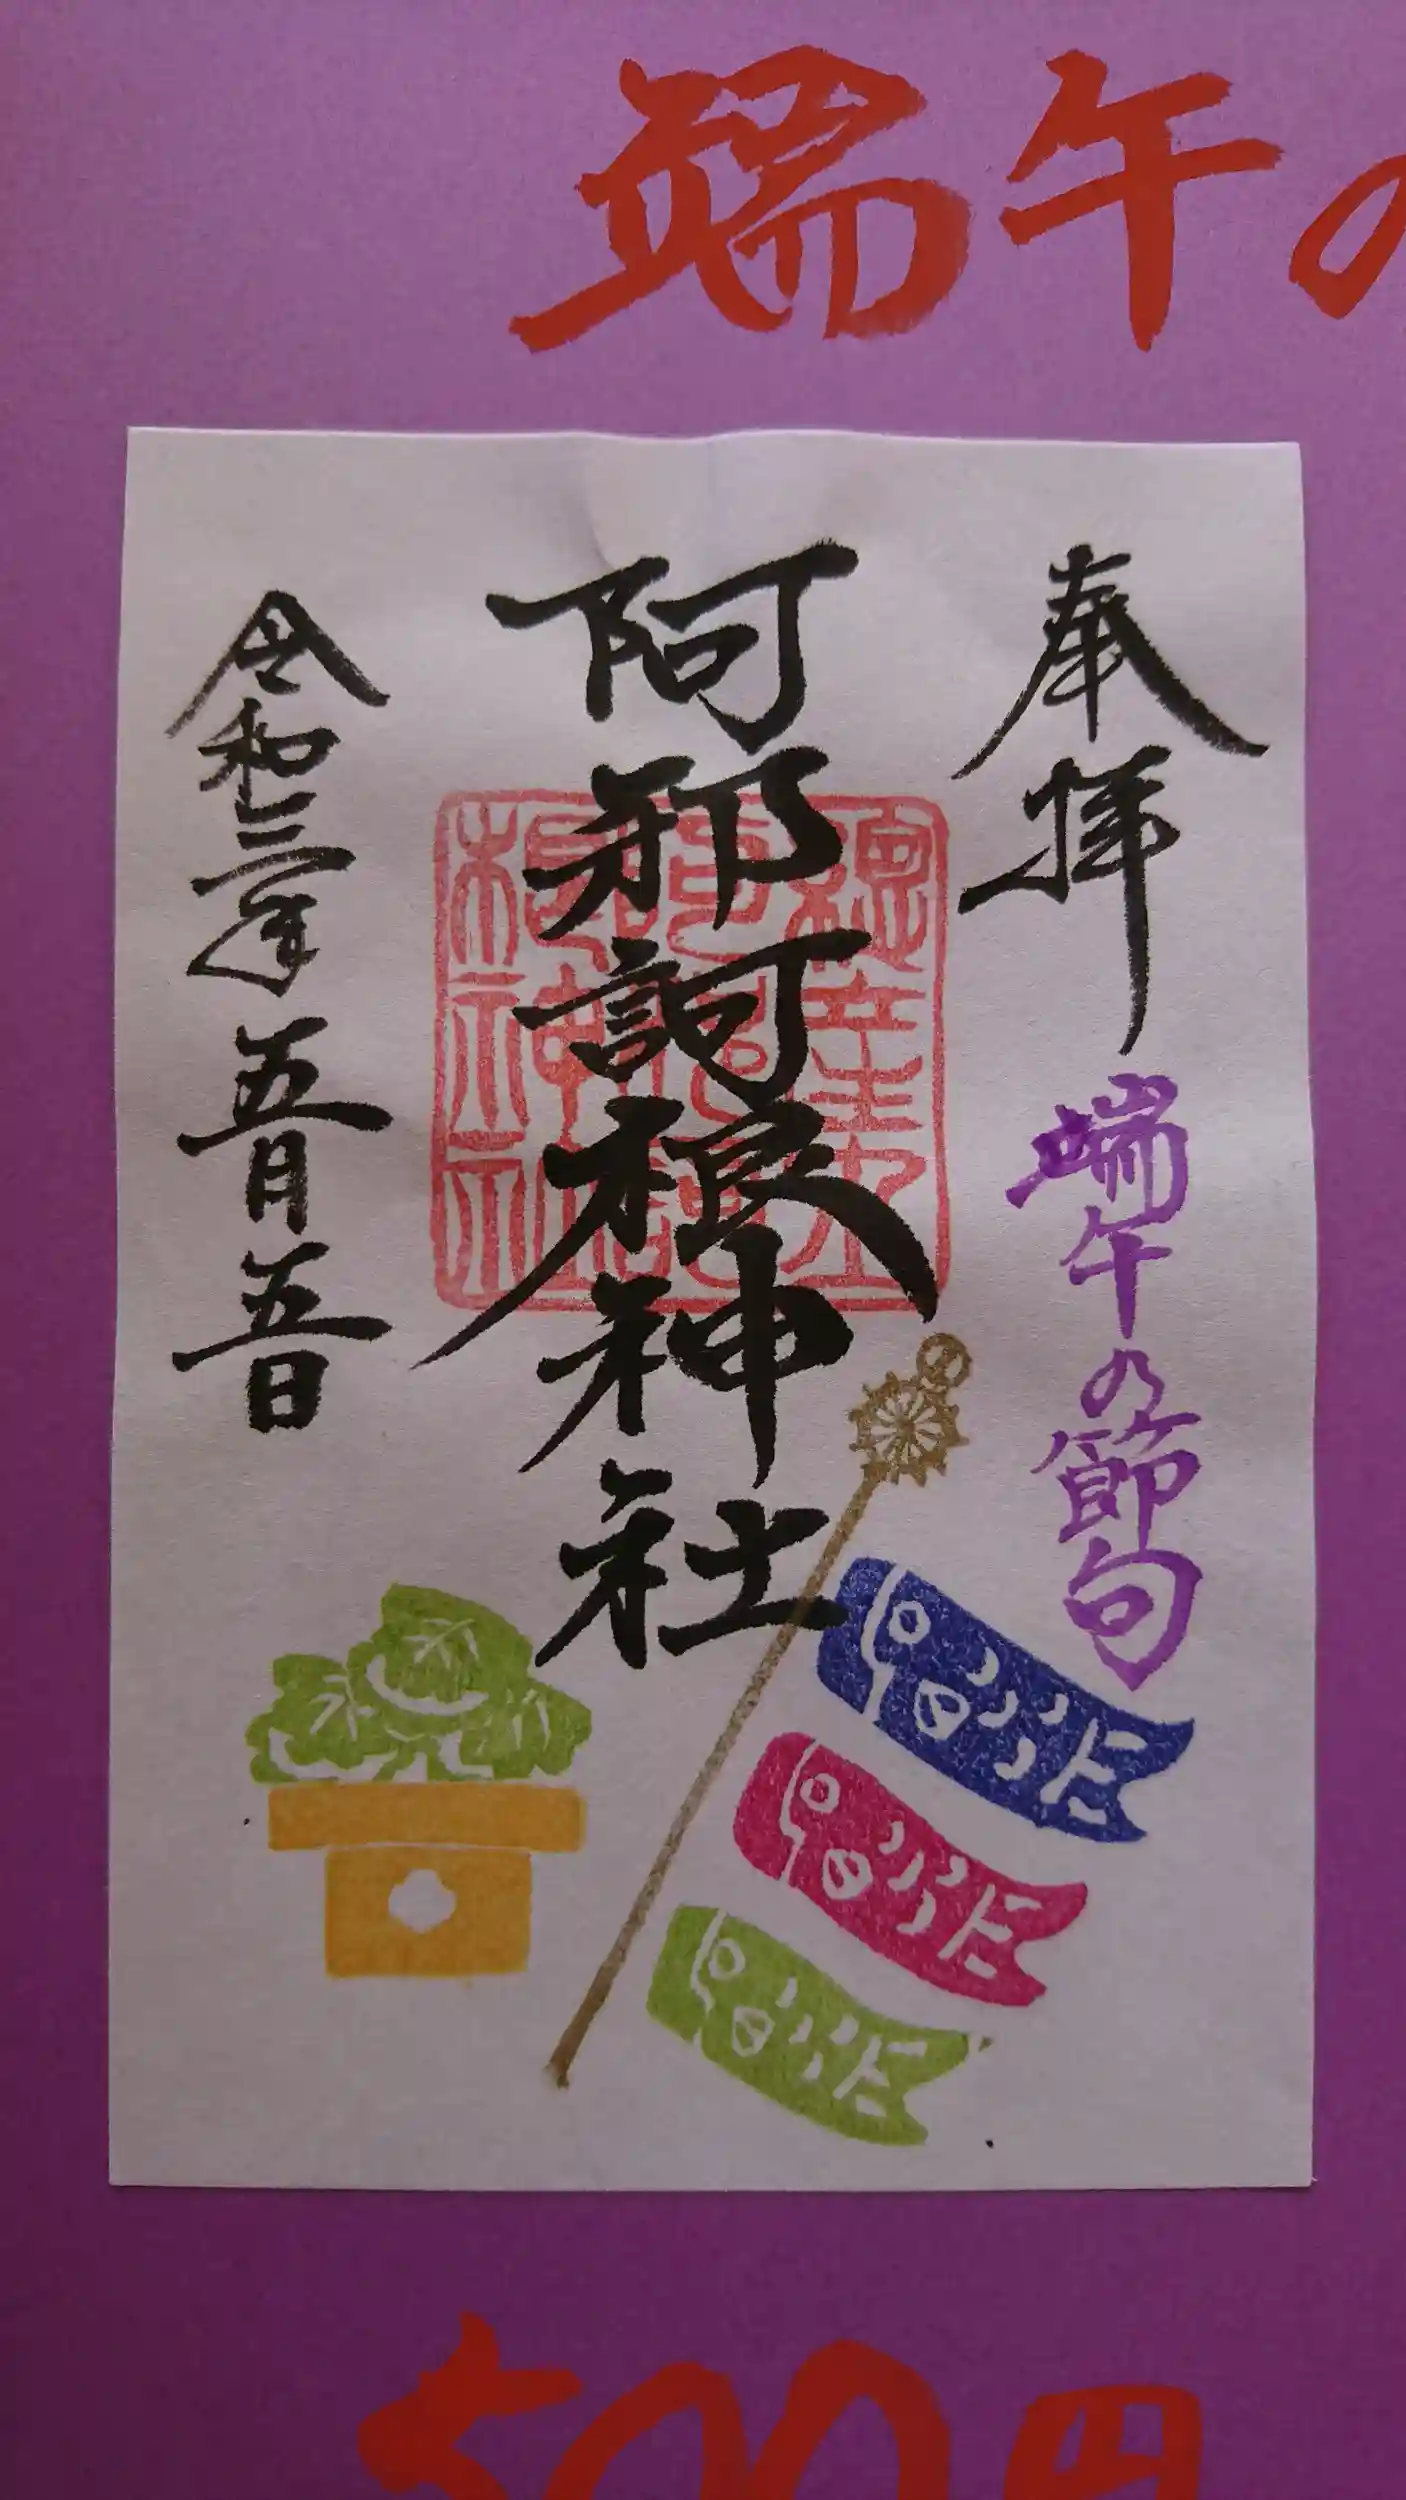 端午の
奉拝
端午の節句
阿邪訶根神社
令和三年五月五日
500円